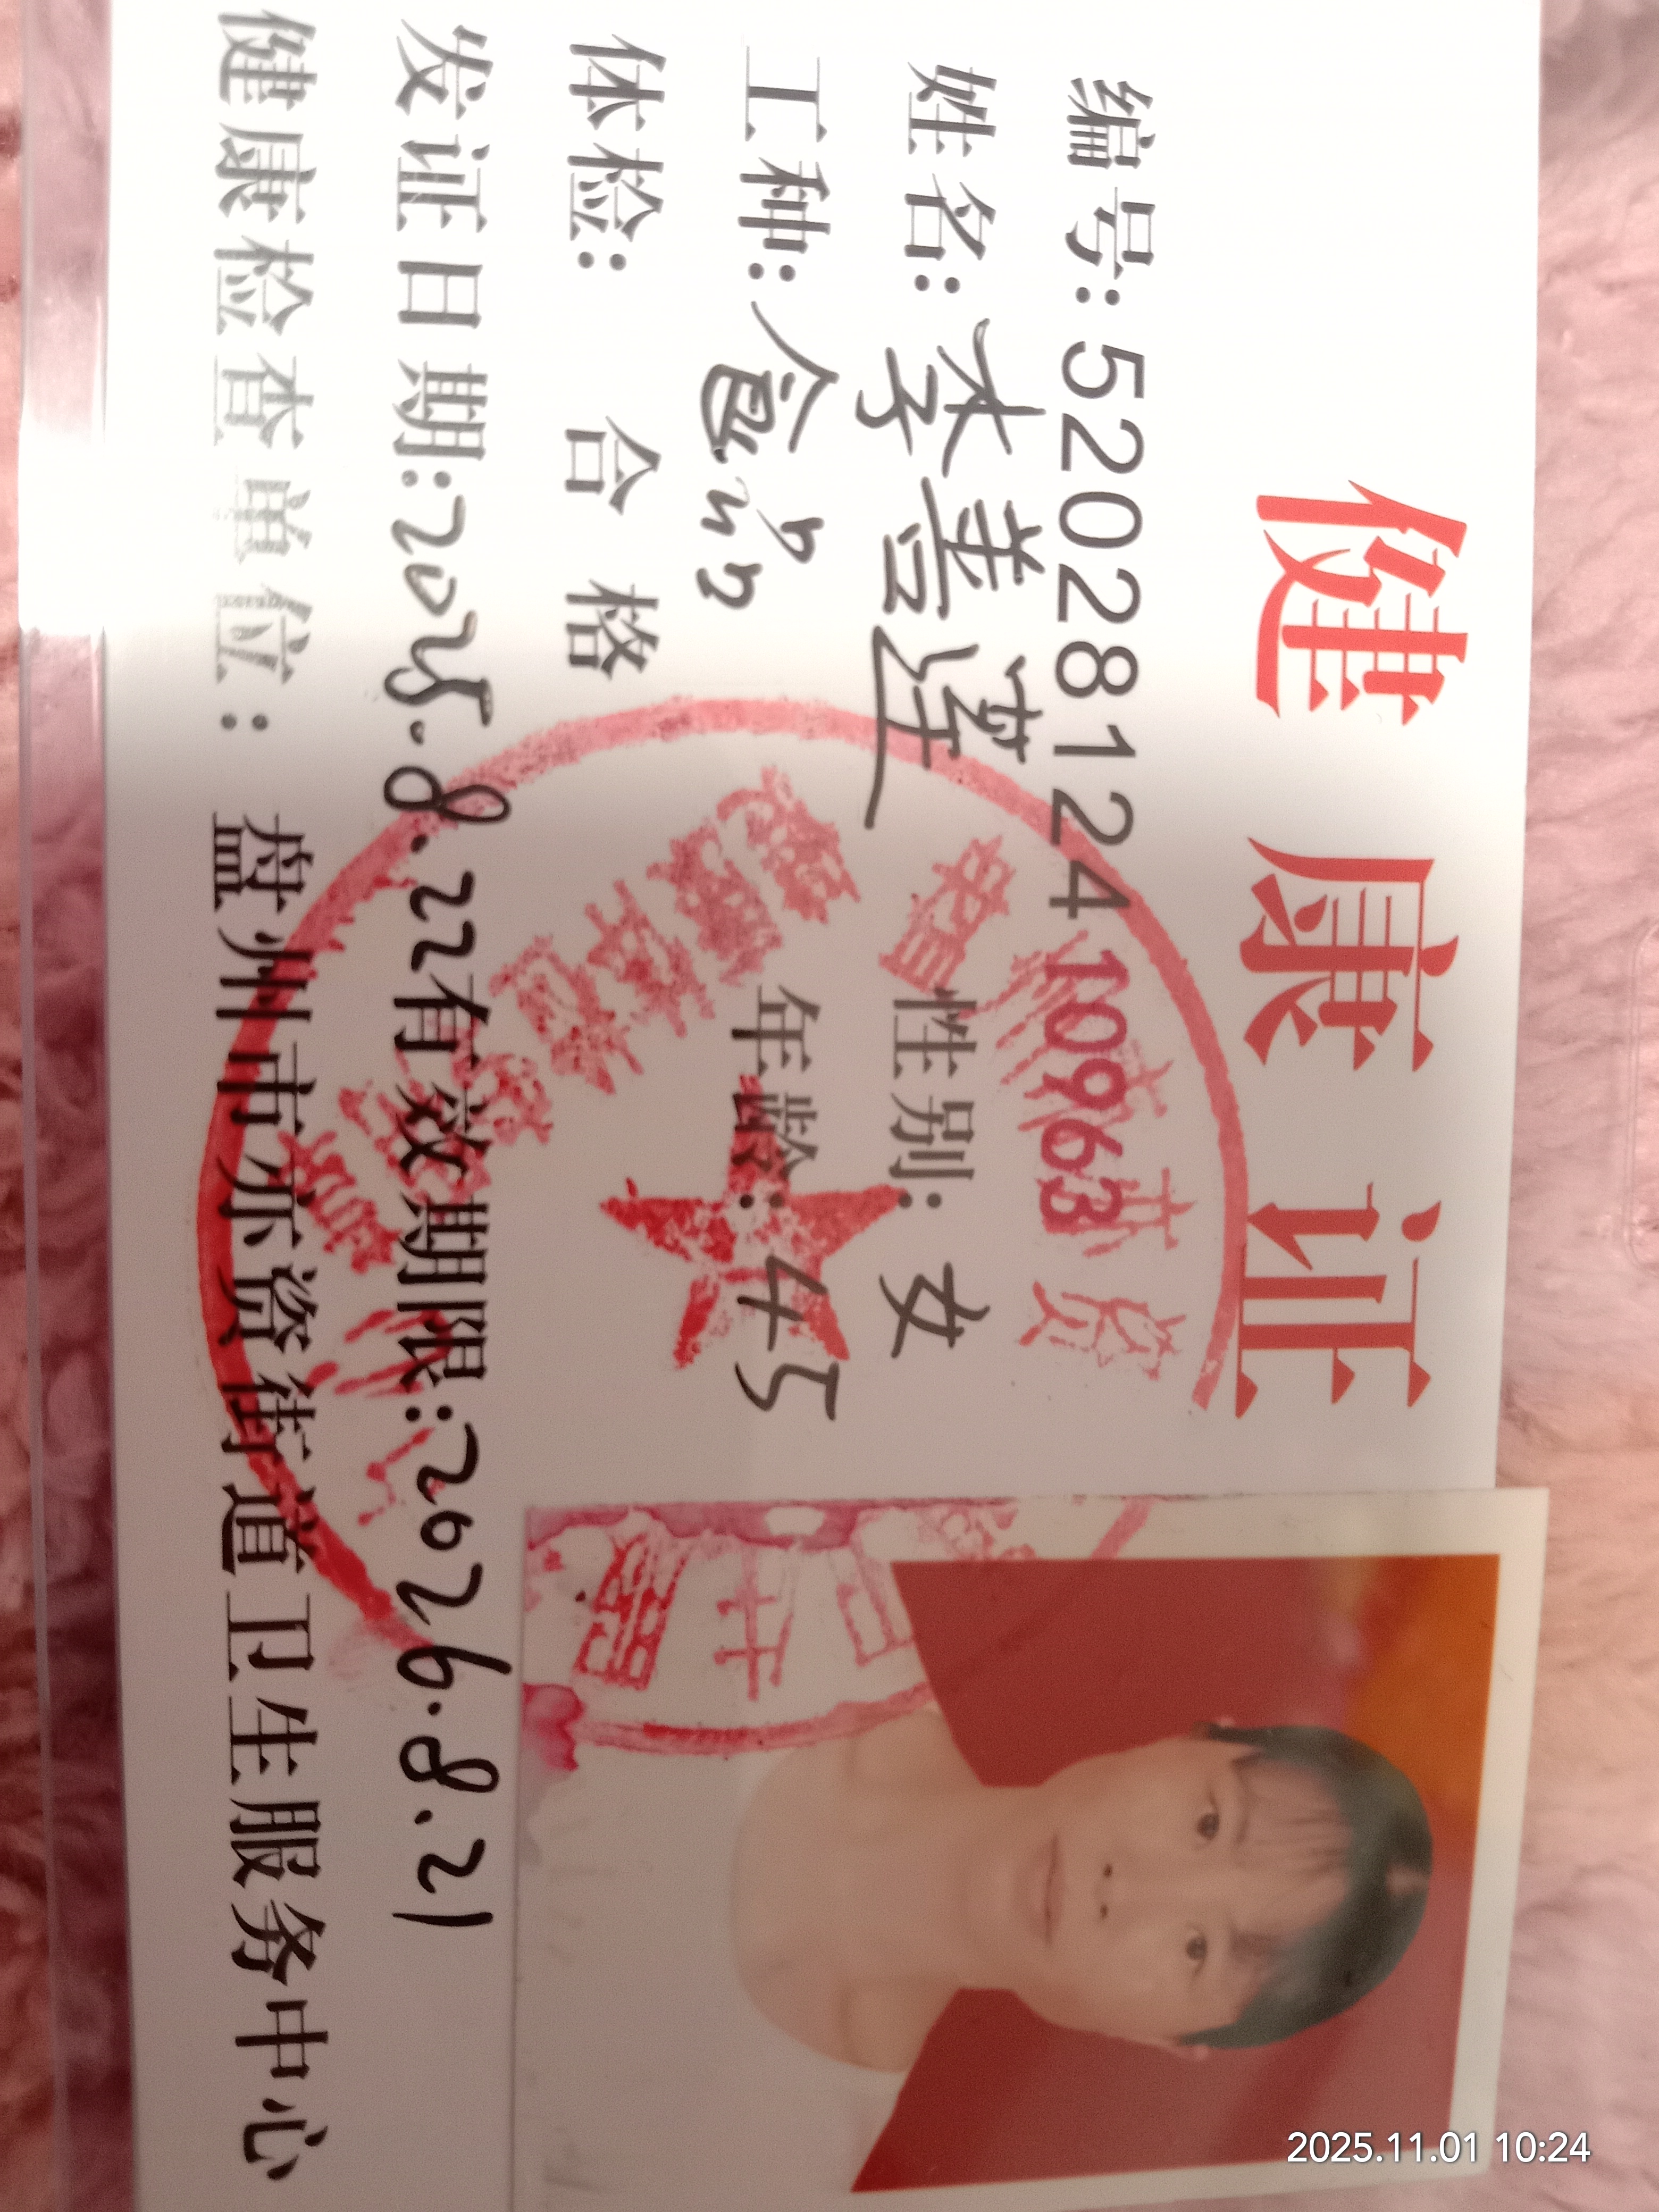 健康证
编号：52028124 10963
姓名：李善莲 性别：女
工种：食品 年龄：45
体检： 合 格
发证日期：2025.8.22有效期限：2026.8.21
健康检查单位：盘州市亦资街道卫生服务中心
2025.11.01 10:24